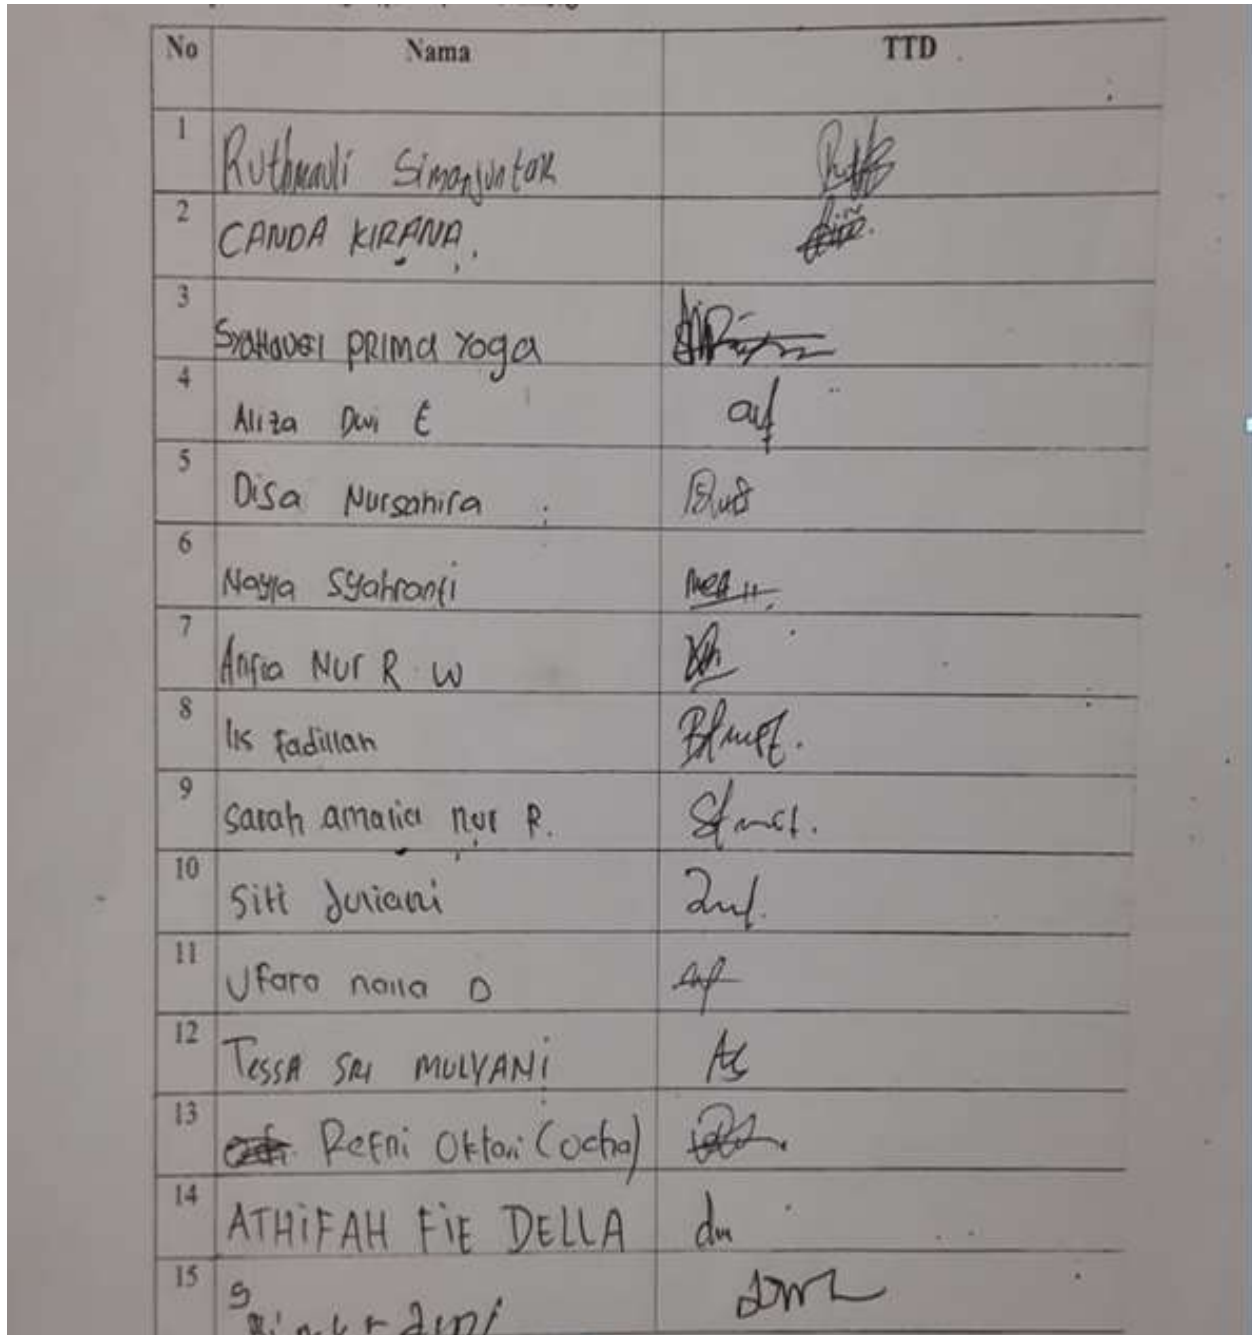 No Nama TTD
1 Ruthmauli Simanjuntak
2 CANDA KIRANA.
3 PRIMA YOGA
4 Aliza Dwi E
5 Disa Nursahira
6 Nayla Syahranti
7 Nur R. W
8 Iis Fadillah
9 Sarah amalia nur R.
10 Siti Juriani
11 Ufara naila D
12 TESSA SRI MULYANI
13 Refni Oktari (ocha)
14 ATHIFAH FIE DELLA
15